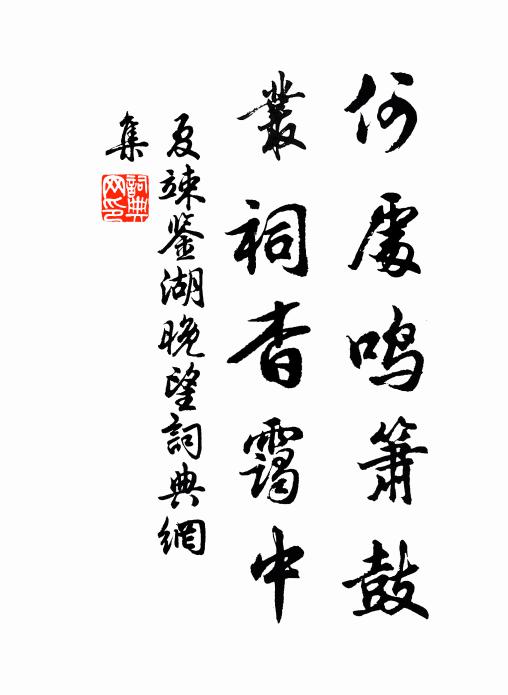 何處鳴簫鼓
叢祠杳靄中
夏竦鉴湖晚望詞典網
集
詞典
网印